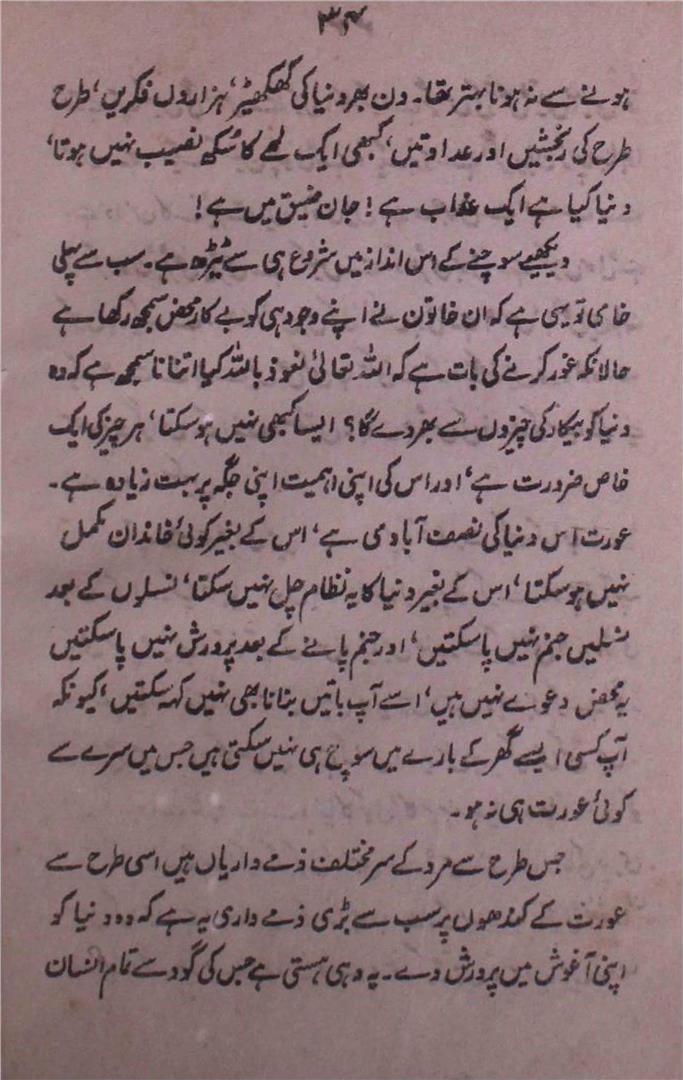 ۳۴
ہونے سے نہ ہونا بہتر تھا۔ دن بھر دنیا کی گھکھیڑ، ہزاروں فکریں، طرح
طرح کی رنجشیں اور عداوتیں، کبھی ایک لمحے کا سُکھ نصیب نہیں ہوتا،
دنیا کیا ہے ایک عذاب ہے! جان ضیق میں ہے!
دیکھیے سوچنے کے اس انداز میں شروع ہی سے ٹیڑھ ہے۔ سب سے پہلی
خامی تو یہی ہے کہ ان خاتون نے اپنے وجود ہی کو بے کار محض سمجھ رکھا ہے
حالانکہ غور کرنے کی بات ہے کہ اللہ تعالیٰ نعوذ باللہ کیا اتنا نا سمجھ ہے کہ وہ
دنیا کو بیکار کی چیزوں سے بھر دے گا؟ ایسا کبھی نہیں ہو سکتا، ہر چیز کی ایک
خاص ضرورت ہے، اور اس کی اپنی اہمیت اپنی جگہ پر بہت زیادہ ہے۔
عورت اس دنیا کی نصف آبادی ہے، اس کے بغیر کوئی خاندان مکمل
نہیں ہو سکتا، اس کے بغیر دنیا کا یہ نظام چل نہیں سکتا، نسلوں کے بعد
نسلیں جنم نہیں پا سکتیں، اور جنم پانے کے بعد پرورش نہیں پا سکتیں
یہ محض دعوے نہیں ہیں، اسے آپ باتیں بنانا بھی نہیں کہہ سکتیں، کیونکہ
آپ کسی ایسے گھر کے بارے میں سوچ ہی نہیں سکتی ہیں جس میں سرے سے
کوئی عورت ہی نہ ہو۔
جس طرح سے مرد کے سر مختلف ذمے داریاں ہیں اسی طرح سے
عورت کے کندھوں پر سب سے بڑی ذمے داری یہ ہے کہ وہ دنیا کو
اپنی آغوش میں پرورش دے۔ یہ وہی ہستی ہے جس کی گود سے تمام انسان